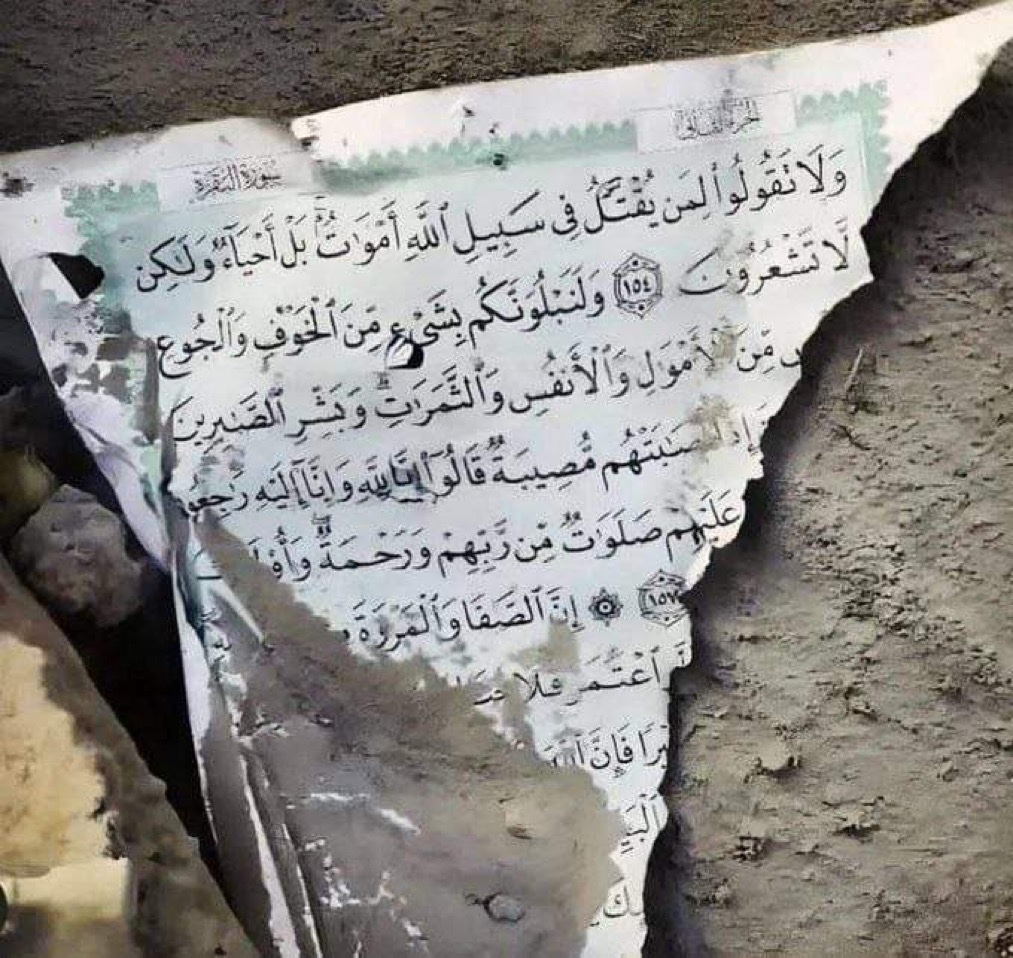 الجزء الثاني
سورة البقرة
وَلَا تَقُولُوا لِمَن يُقْتَلُ فِي سَبِيلِ ٱللَّهِ أَمْوَٰتٌ بَلْ أَحْيَآءٌ وَلَٰكِن
لَّا تَشْعُرُونَ ١٥٤ وَلَنَبْلُوَنَّكُم بِشَىْءٍ مِّنَ ٱلْخَوْفِ وَٱلْجُوعِ
مِّنَ ٱلْأَمْوَٰلِ وَٱلْأَنفُسِ وَٱلثَّمَرَٰتِ وَبَشِّرِ ٱلصَّٰبِرِينَ
إِذَا مُّصِيبَةٌ قَالُوٓا إِنَّا لِلَّهِ وَإِنَّآ إِلَيْهِ
عَلَيْهِمْ صَلَوَٰتٌ مِّن رَّبِّهِمْ وَرَحْمَةٌ
١٥٧ ۞ إِنَّ ٱلصَّفَا وَٱلْمَرْوَةَ
ٱعْتَمَرَ فَلَا
فَإِنَّ ٱللَّهَ